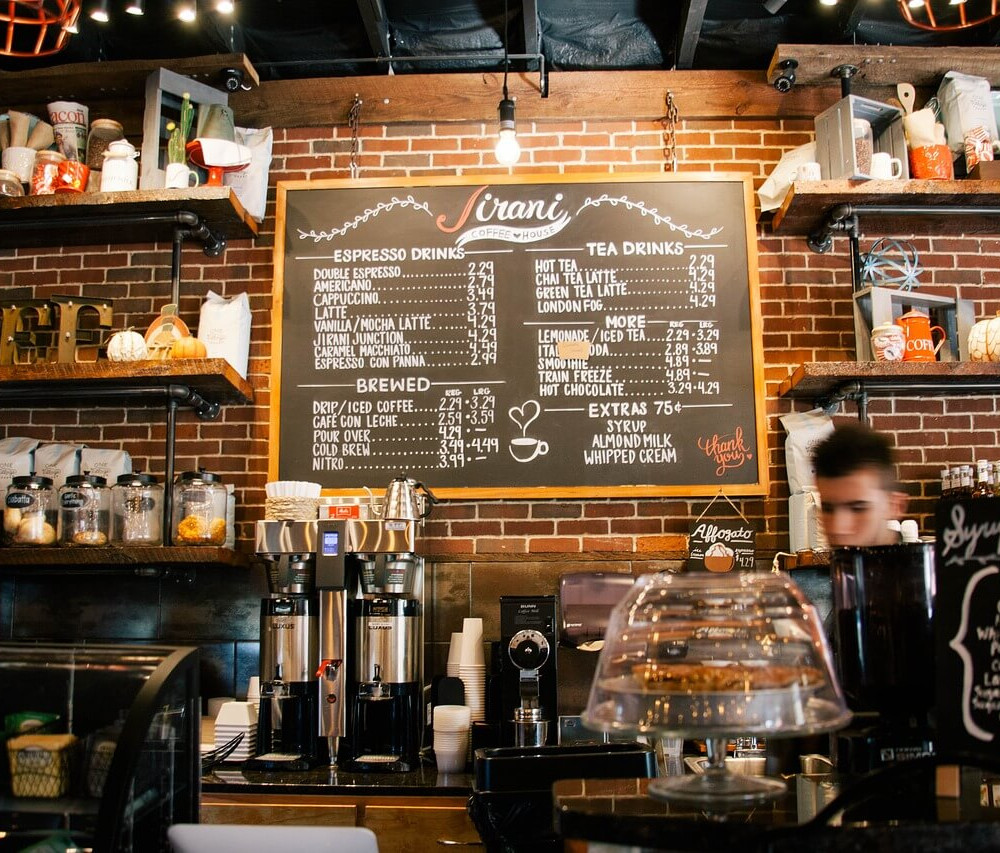 Jirani
COFFEE HOUSE
ESPRESSO DRINKS
DOUBLE ESPRESSO 2.29
AMERICANO 2.79
CAPPUCCINO 3.49
LATTE 3.79
VANILLA/MOCHA LATTE 4.29
JIRANI JUNCTION 4.29
CARAMEL MACCHIATO 4.49
ESPRESSO CON PANNA 2.99
BREWED
REG LRG
DRIP/ICED COFFEE 2.29 • 3.29
CAFÉ CON LECHE 2.59 • 3.59
POUR OVER 4.29 • —
COLD BREW 3.49 • 4.49
NITRO 3.99 • —
TEA DRINKS
HOT TEA 2.29
CHAI TEA LATTE 4.29
GREEN TEA LATTE 4.29
LONDON FOG 4.29
MORE
REG LRG
LEMONADE/ICED TEA 2.29 • 3.29
2.89 • 3.89
SMOOTHIE 4.89 • —
TRAIN FREEZE 4.89 • —
HOT CHOCOLATE 3.29 • 4.29
EXTRAS 75¢
SYRUP
ALMOND MILK
WHIPPED CREAM
thank you
Affogato
$4.29
LUXUS
LUXUS
BUNN